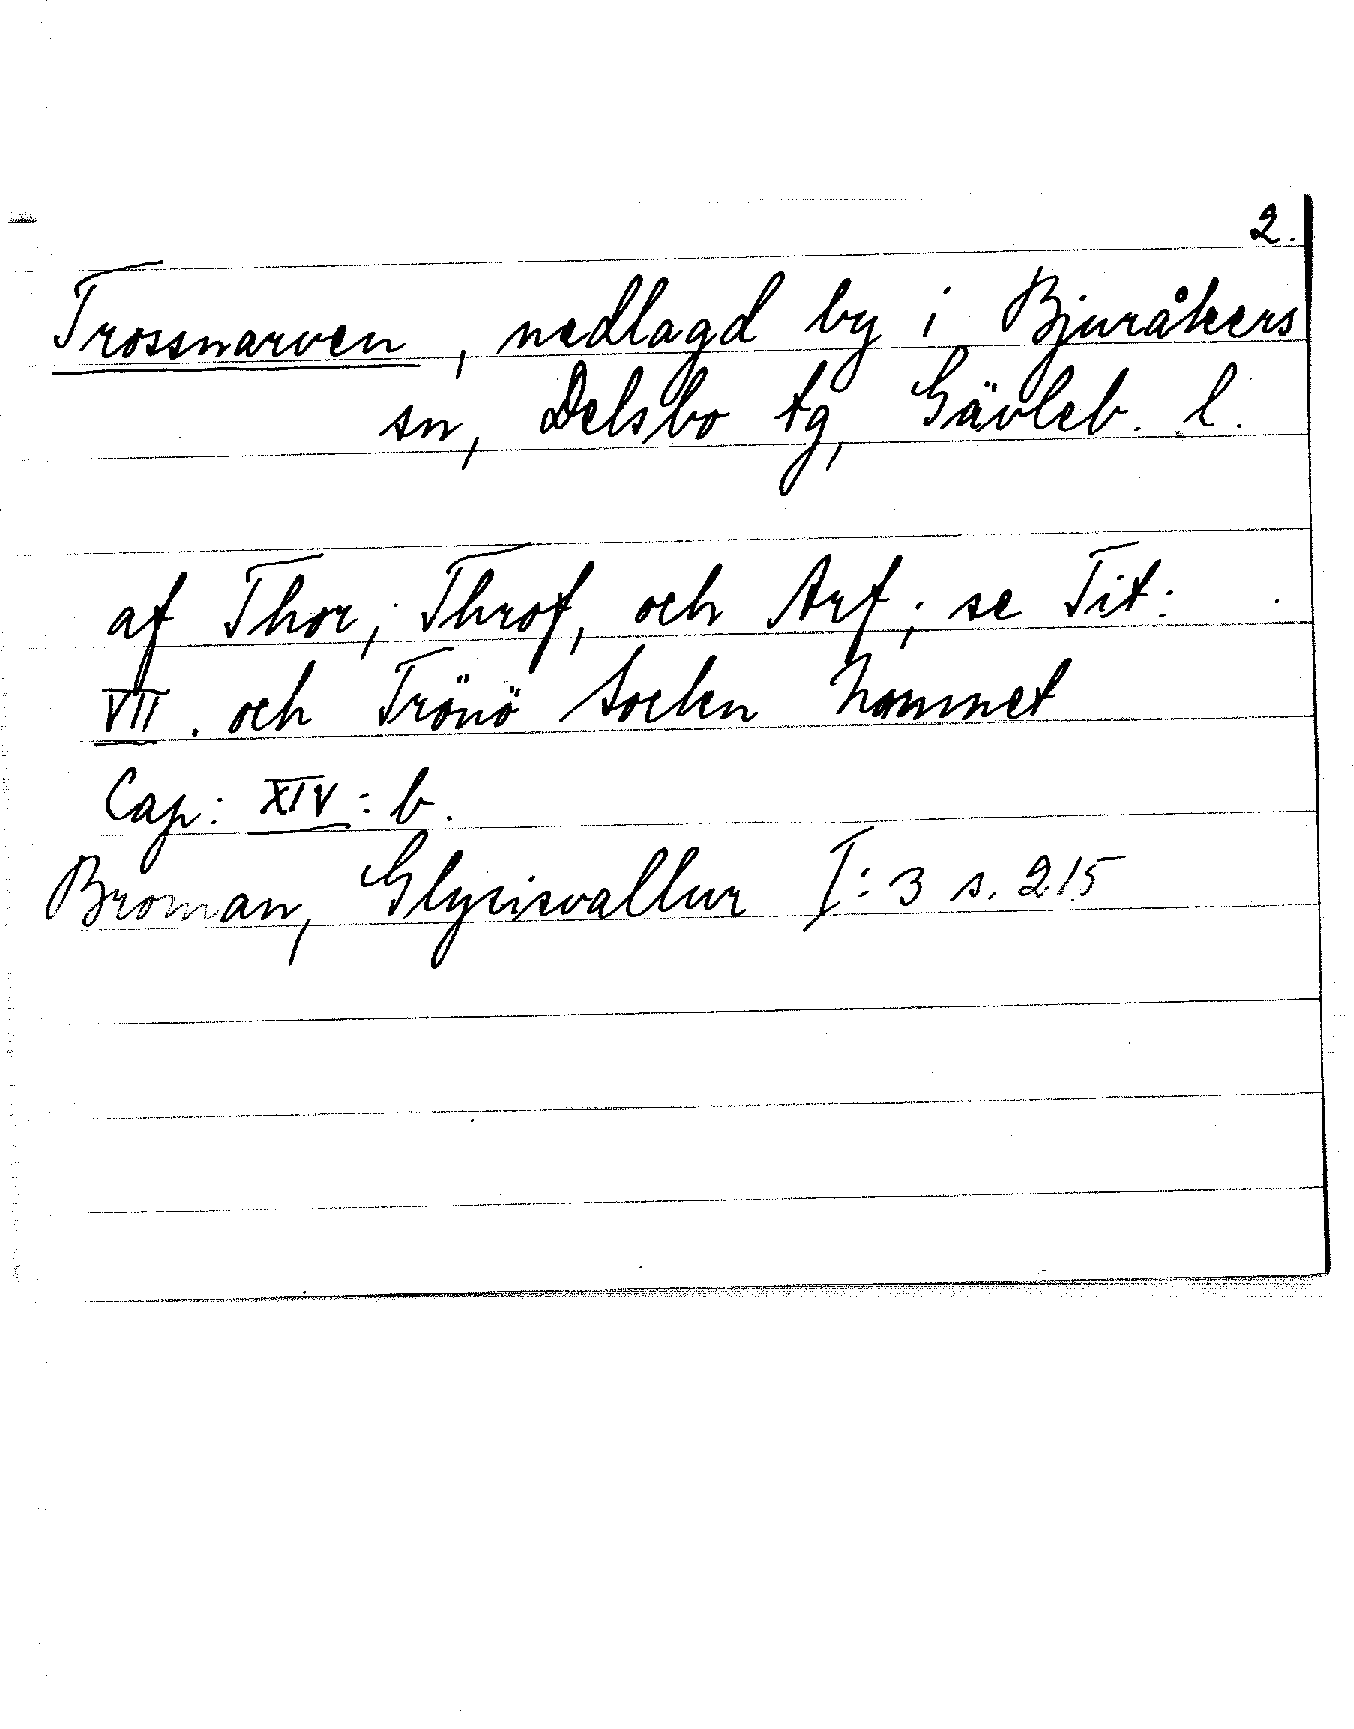 2.
Trossnarven, nedlagd by i Bjuråkers
sn, Delsbo tg, Gävleb. l.
af Thor, Throf, och Arf; se Tit:
VII. och Trönö Sockn Namnet
Cap: XIV: b.
Broman, Glysisvallur I: 3 s. 215